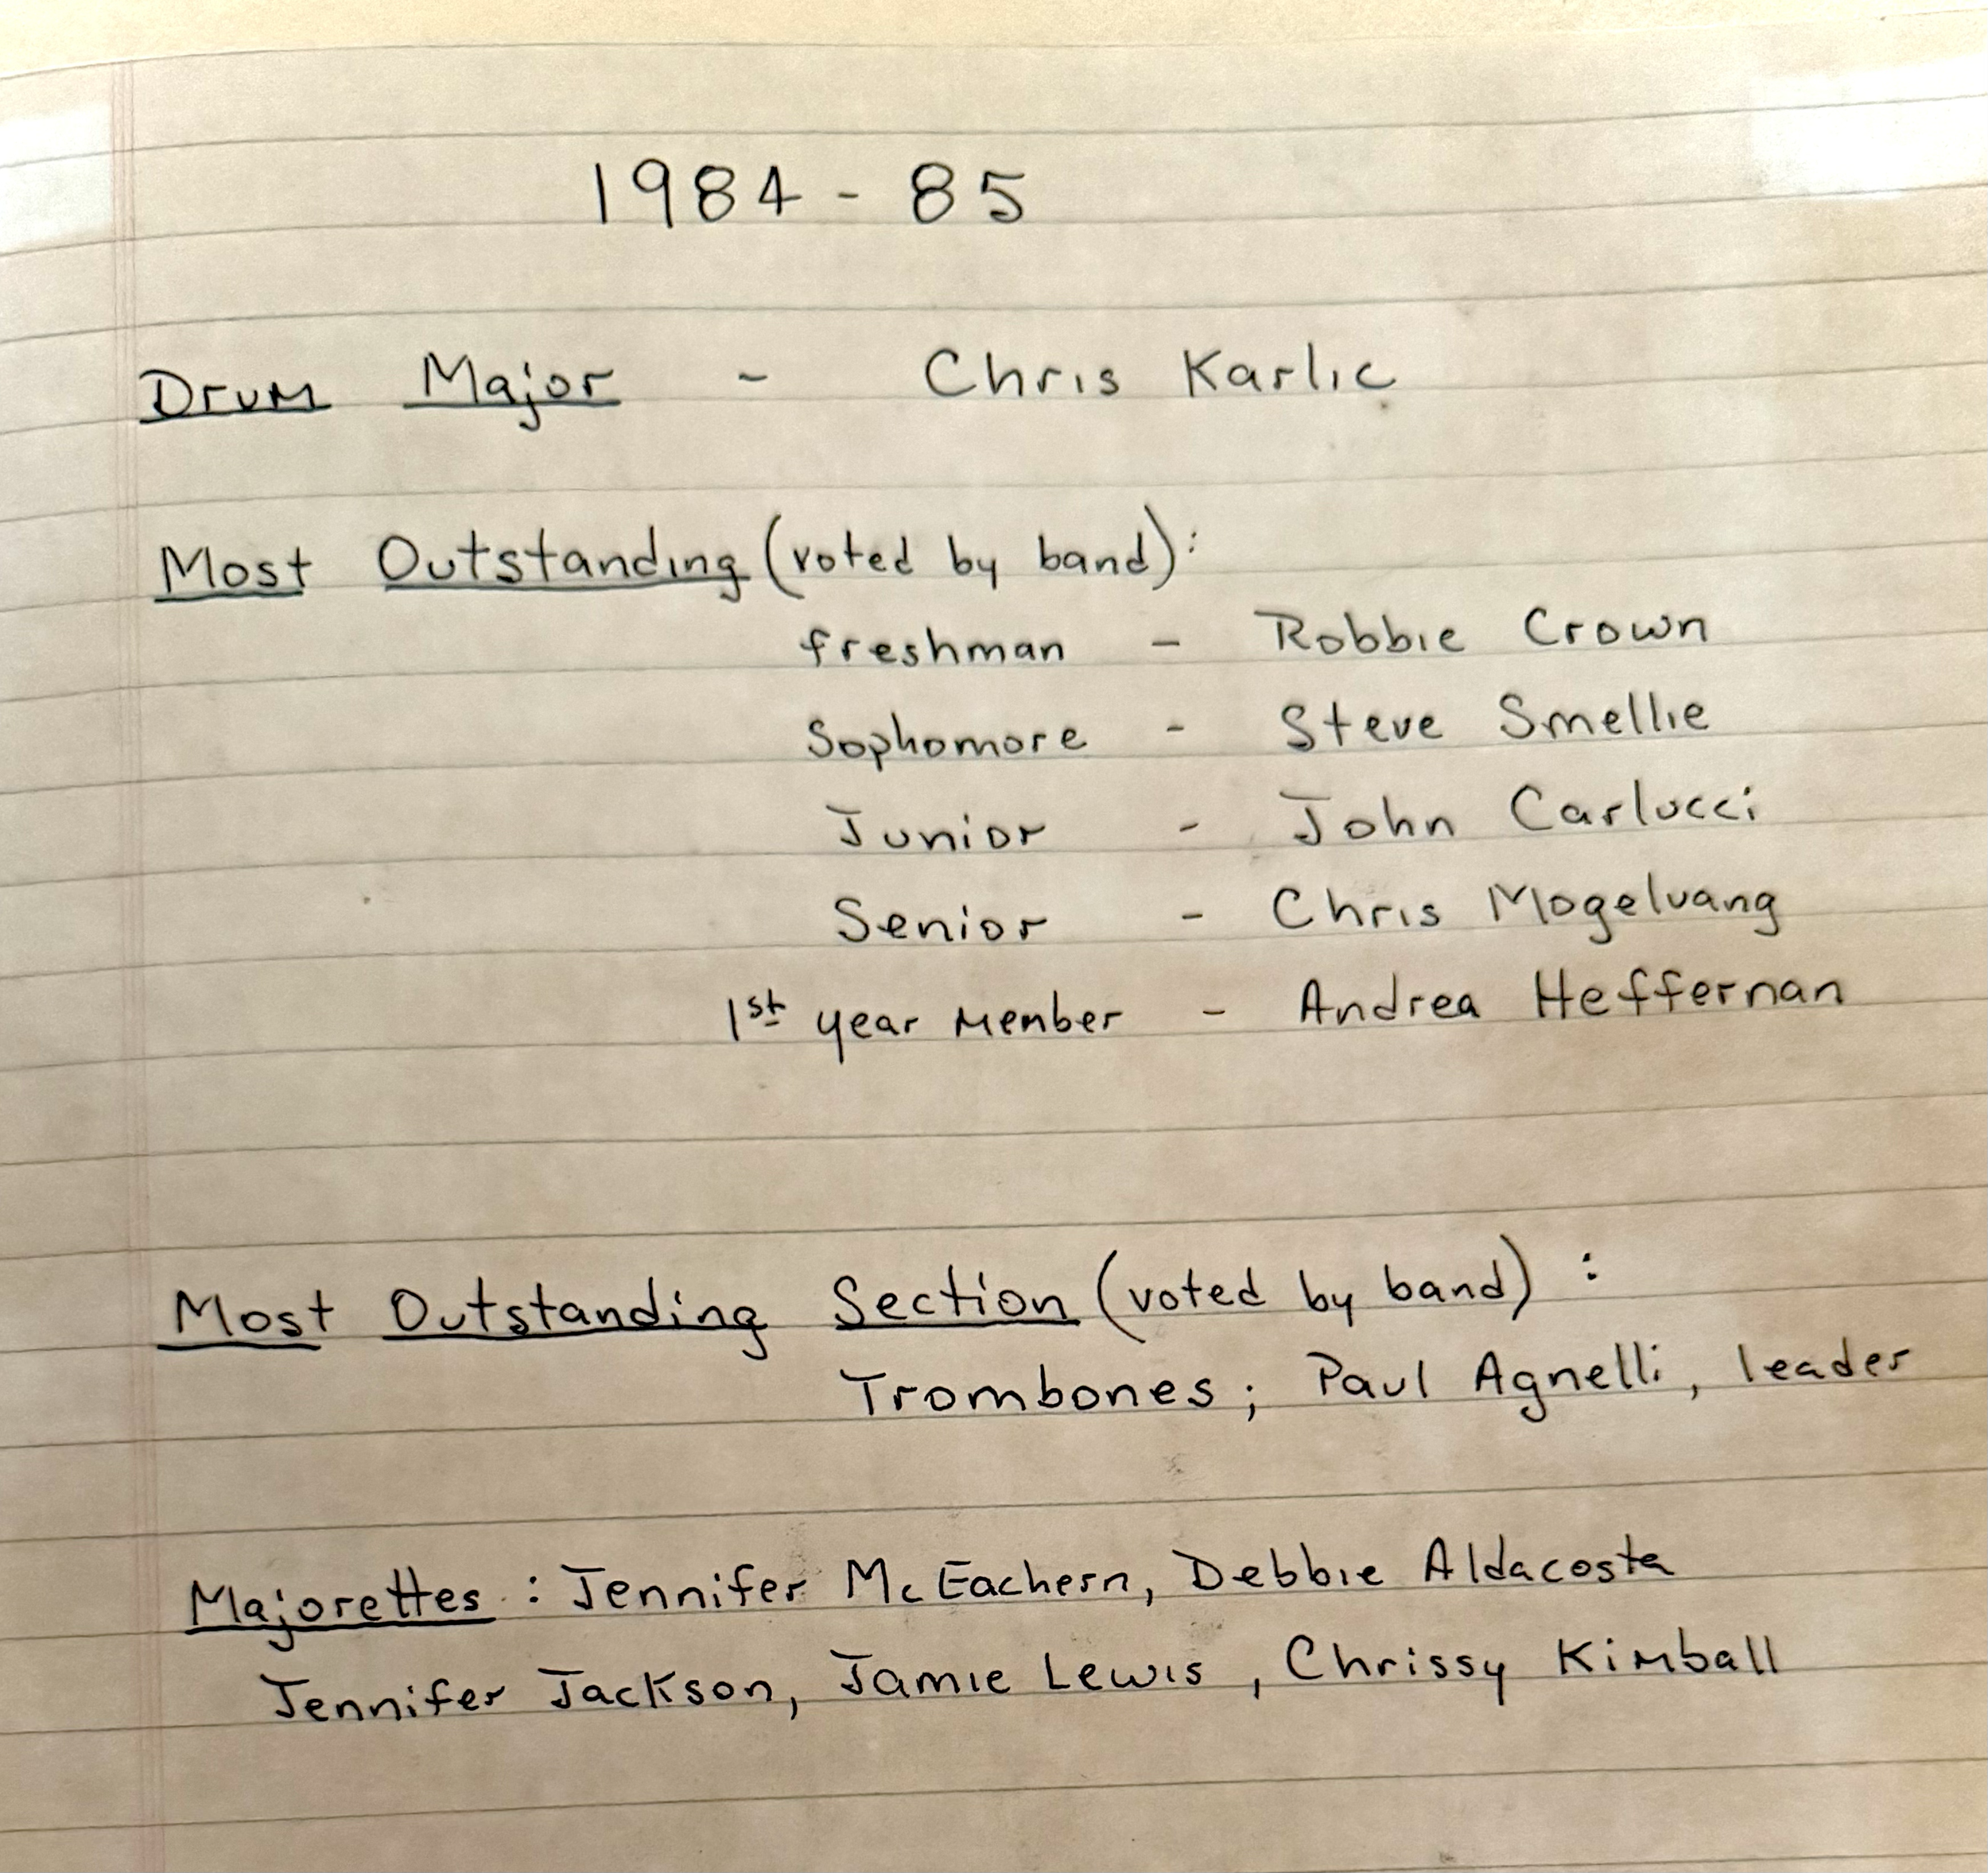 1984 - 85
Drum Major - Chris Karlic
Most Outstanding (voted by band):
freshman - Robbie Crown
Sophomore - Steve Smellie
Junior - John Carlucci
Senior - Chris Mogelvang
1st year member - Andrea Heffernan
Most Outstanding Section (voted by band) :
Trombones; Paul Agnelli, leader
Majorettes : Jennifer McEachern, Debbie Aldacosta
Jennifer Jackson, Jamie Lewis , Chrissy Kimball